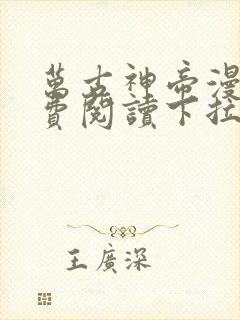 萬古神帝漫
費閱讀下拉
王廣深